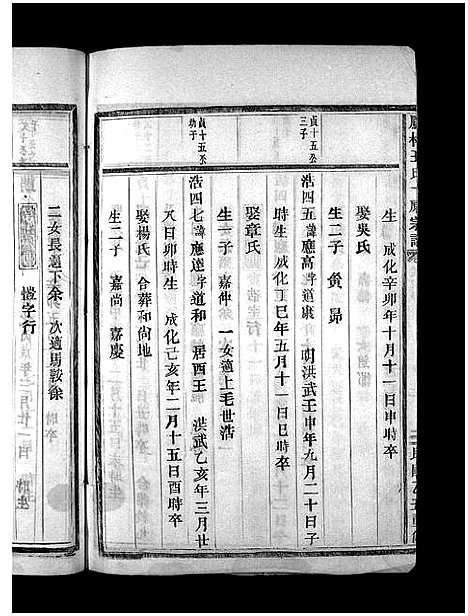 生 成化辛卯年十月十一日申時卒
娶吳氏
生二子 昴
貞十五公三子
浩四五諱應高字道康 明洪武壬申年九月二十日子
時生 成化丁巳年五月十一日巳時卒
娶章氏
生一子 嘉仲 一女適上毛世浩
貞十五公幼子
浩四七諱應達字道和 居酉王 洪武乙亥年三月廿
八日卯時生 成化己亥年二月十五日酉時卒
娶楊氏 合葬和尚地
生二子 嘉尚 嘉慶
二女長適下余 次適馬鞍徐
愷字行